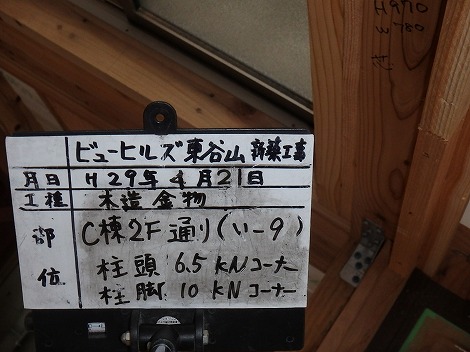 H970
W780
ビューヒルズ東谷山 新築工事
月日 H29年4月21日
工種 木造金物
部位 C棟2F通り(い-9)
柱頭 6.5kNコーナー
柱脚 10kNコーナー